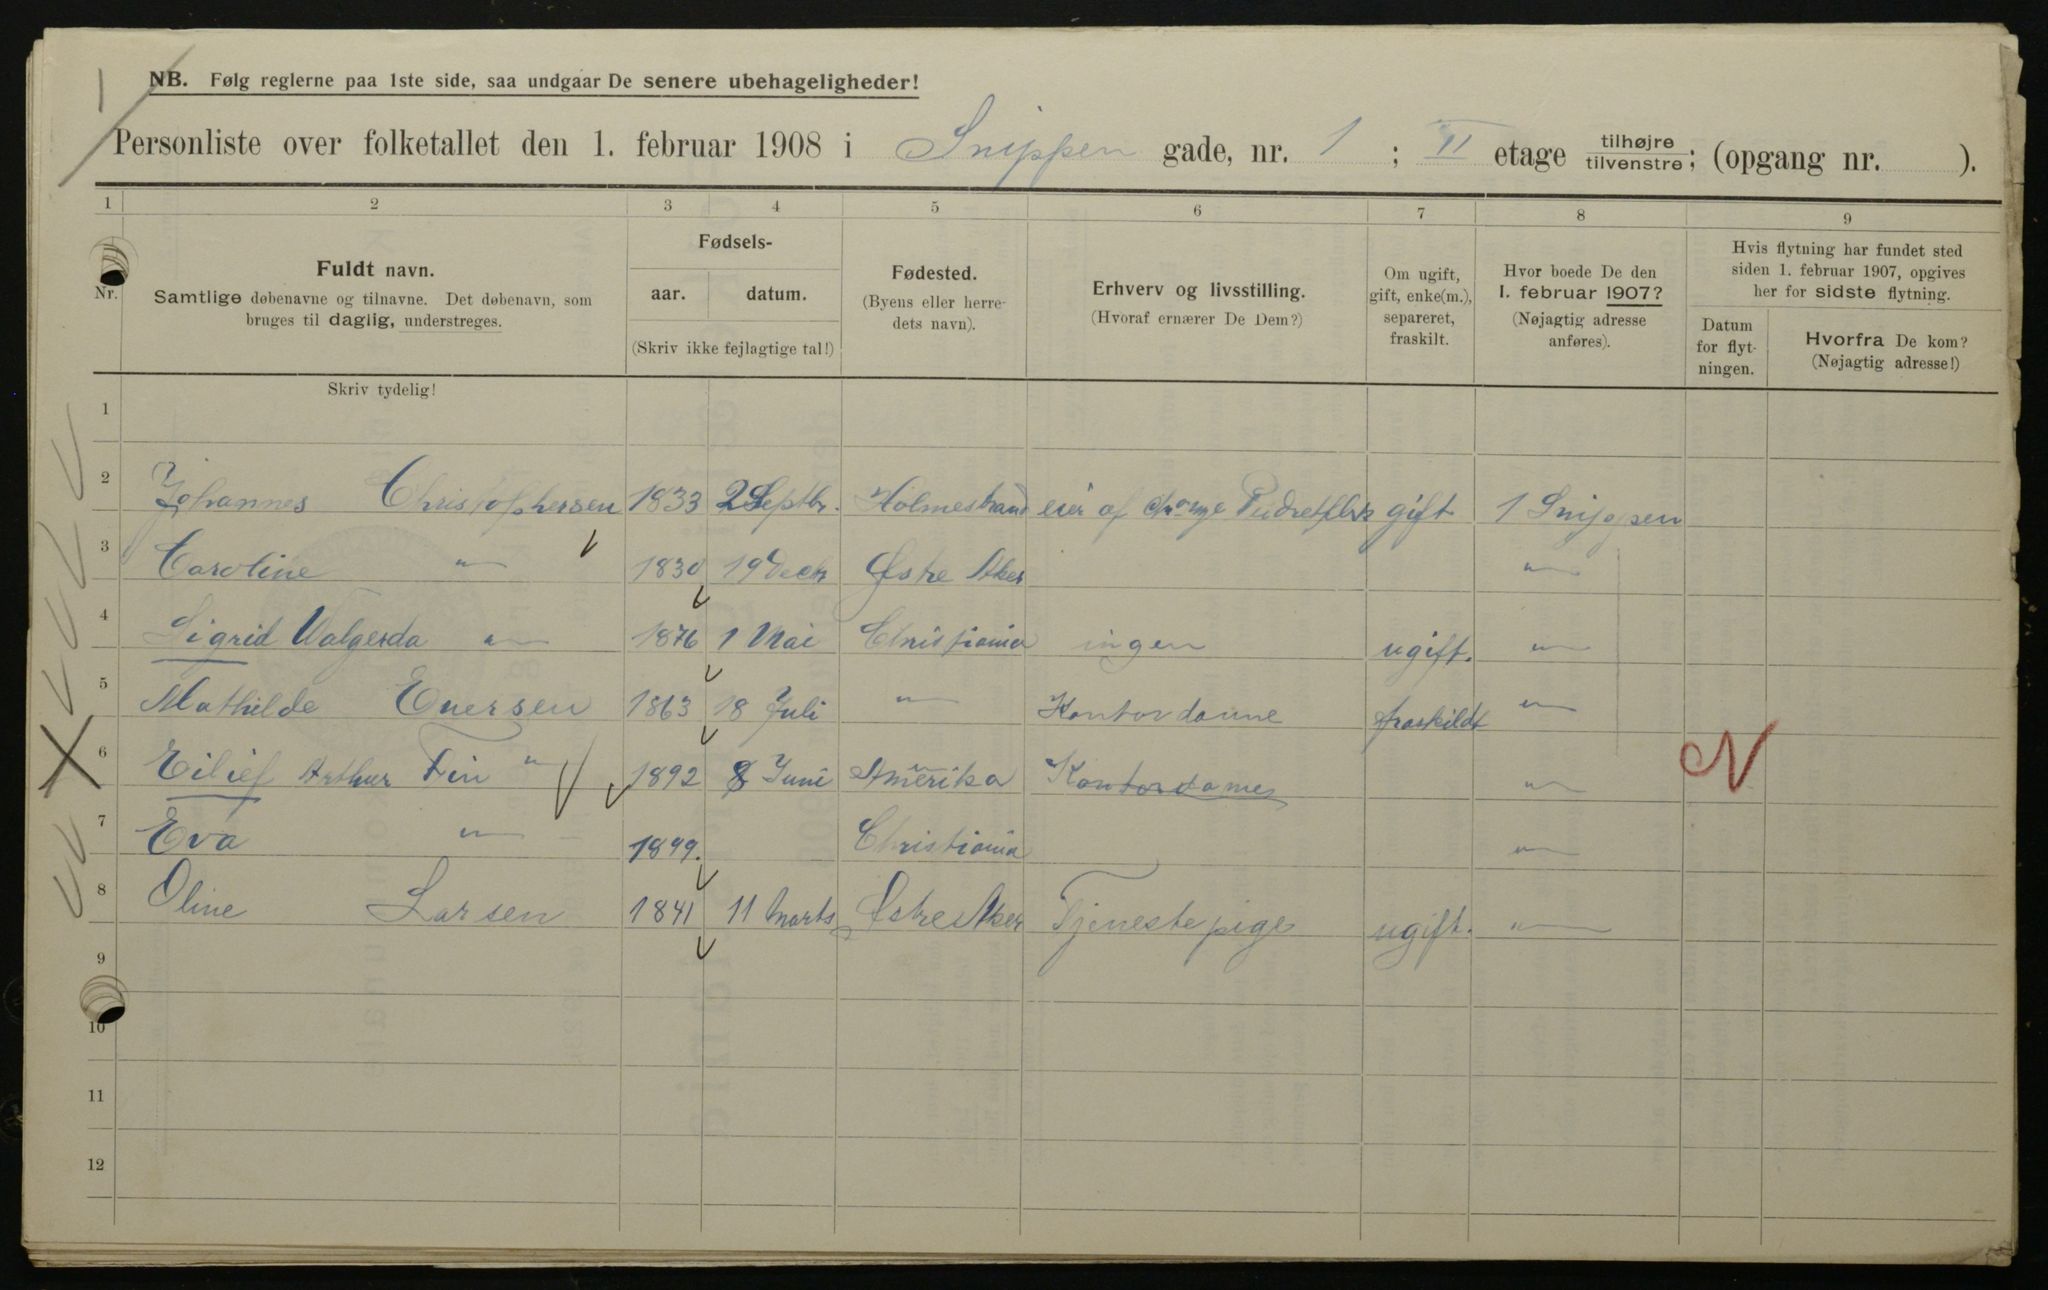 NB. Følg reglerne paa 1ste side, saa undgaar De senere ubehageligheder!
Personliste over folketallet den 1. februar 1908 i Snippen gade, nr. 1 ; II etage tilhøjre tilvenstre; (opgang nr. ).
1 2 3 4 5 6 7 8 9
Nr.
Fuldt navn.
Samtlige døbenavne og tilnavne. Det døbenavn, som
bruges til daglig, understreges.
Skriv tydelig!
Fødsels-
aar. datum.
(Skriv ikke fejlagtige tal!)
Fødested.
(Byens eller herre-
dets navn).
Erhverv og livsstilling.
(Hvoraf ernærer De Dem?)
Om ugift,
gift, enke(m.),
separeret,
fraskilt.
Hvor boede De den
1. februar 1907?
(Nøjagtig adresse
anføres).
Hvis flytning har fundet sted
siden 1. februar 1907, opgives
her for sidste flytning.
Datum
for flyt-
ningen.
Hvorfra De kom?
(Nøjagtig adresse!)
1
2 Johannes Christophersen 1833 2 Septbr. Holmestrand eier af gift 1 Snippen
3 Caroline " 1830 19 Decbr Østre Aker "
4 Sigrid Valgerda " 1876 1 Mai Christiania ingen ugift. "
5 Mathilde Eversen 1863 18 Juli " Kontordame fraskildt "
6 Eilief Arthur Fin " 1892 8 Juni Amerika Kontordame " N
7 Eva " 1899. Christiania "
8 Oline Larsen 1841 11 Marts Østre Aker Tjenestepige ugift. "
9
10
11
12